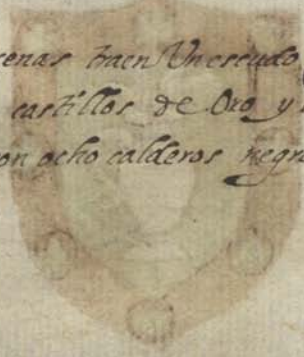 cenas traen Un escudo
castillos de Oro y
on ocho calderos negr